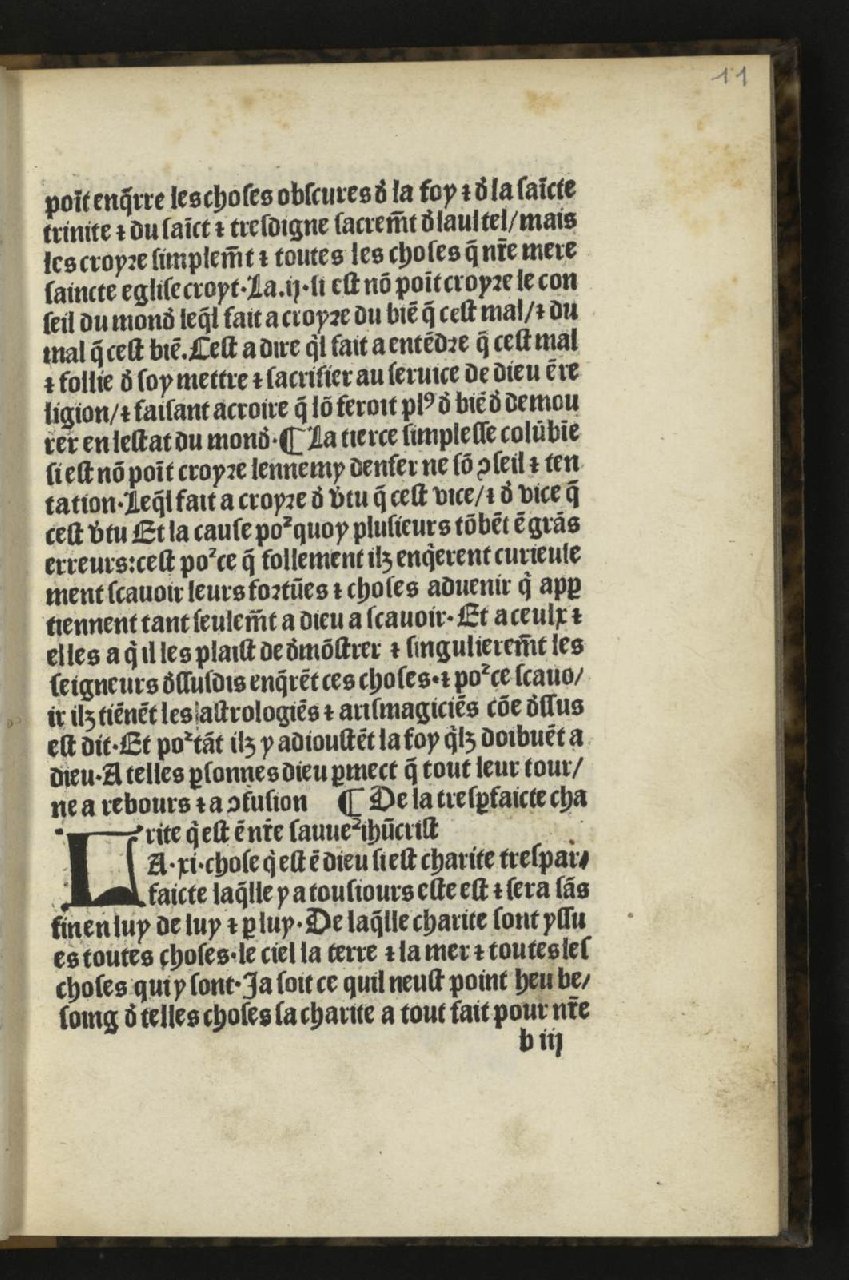 11
poīt enq̄rre les choses obscures d̄ la foy ⁊ d̄ la saīcte
trinite ⁊ du saīct ⁊ tresdigne sacrem̄t d̄ laultel/mais
les croyꝛe simplem̄t ⁊ toutes les choses q̄ nr̄e mere
saincte eglise croyt·La.ij·si est nō poīt croyꝛe le con
seil du mond̄ leq̄l fait a croyꝛe du biē q̄ cest mal/⁊ du
mal q̄ cest biē.Cest a dire q̇l fait a entēdꝛe q̄ cest mal
⁊ follie d̄ soy mettre ⁊ sacrifier au seruice de dieu ē re
ligion/⁊ faisant acroire q̄ lō feroit plꝰ d̄ biē d̄ demou
rer en lestat du mond̄·¶ La tierce simplesse colūbīe
si est nō poīt croyꝛe lennemy denfer ne sō ɔseil ⁊ ten
tation·Leq̄l fait a croyꝛe d̄ v̄tu q̄ cest vice/⁊ d̄ vice q̄
cest v̄tu Et la cause poᷣquoy plusieurs tōbēt ē grās
erreurs:cest poᷣce q̄ follement ilꝫ enq̇erent curieuse
ment scauoir leurs foꝛtūes ⁊ choses aduenir q̇ apꝑ
tiennent tant seulem̄t a dieu a scauoir· Et a ceulx ⁊
elles a q̇ il les plaist de d̄mōstrer ⁊ singulierem̄t les
seigneurs d̄ssusdis enq̄rēt ces choses·⁊ poᷣce scauo/
ir ilꝫ tiēnēt les astrologiēs ⁊ arismagiciēs cōe d̄ssus
est dit·Et poᷣtāt ilꝫ y adioustēt la foy q̇lꝫ doibuēt a
dieu·A telles ꝑsonnes dieu ꝑmect q̄ tout leur tour/
ne a rebours ⁊ a ɔfusion ¶ De la tresꝑfaicte cha
rite q̇ est ē nr̄e sauueᷣ ihūcrist
LA·xi·chose q̇ est ē dieu si est charite trespar/
faicte laq̄lle y a tousiours este est ⁊ sera sās
fin en luy de luy ⁊ ꝑ luy·De laq̄lle charite sont yssu
es toutes choses·le ciel la terre ⁊ la mer ⁊ toutes les
choses qui y sont·Ja soit ce quil neust point heu be/
soing d̄ telles choses sa charite a tout fait pour nr̄e
b iij